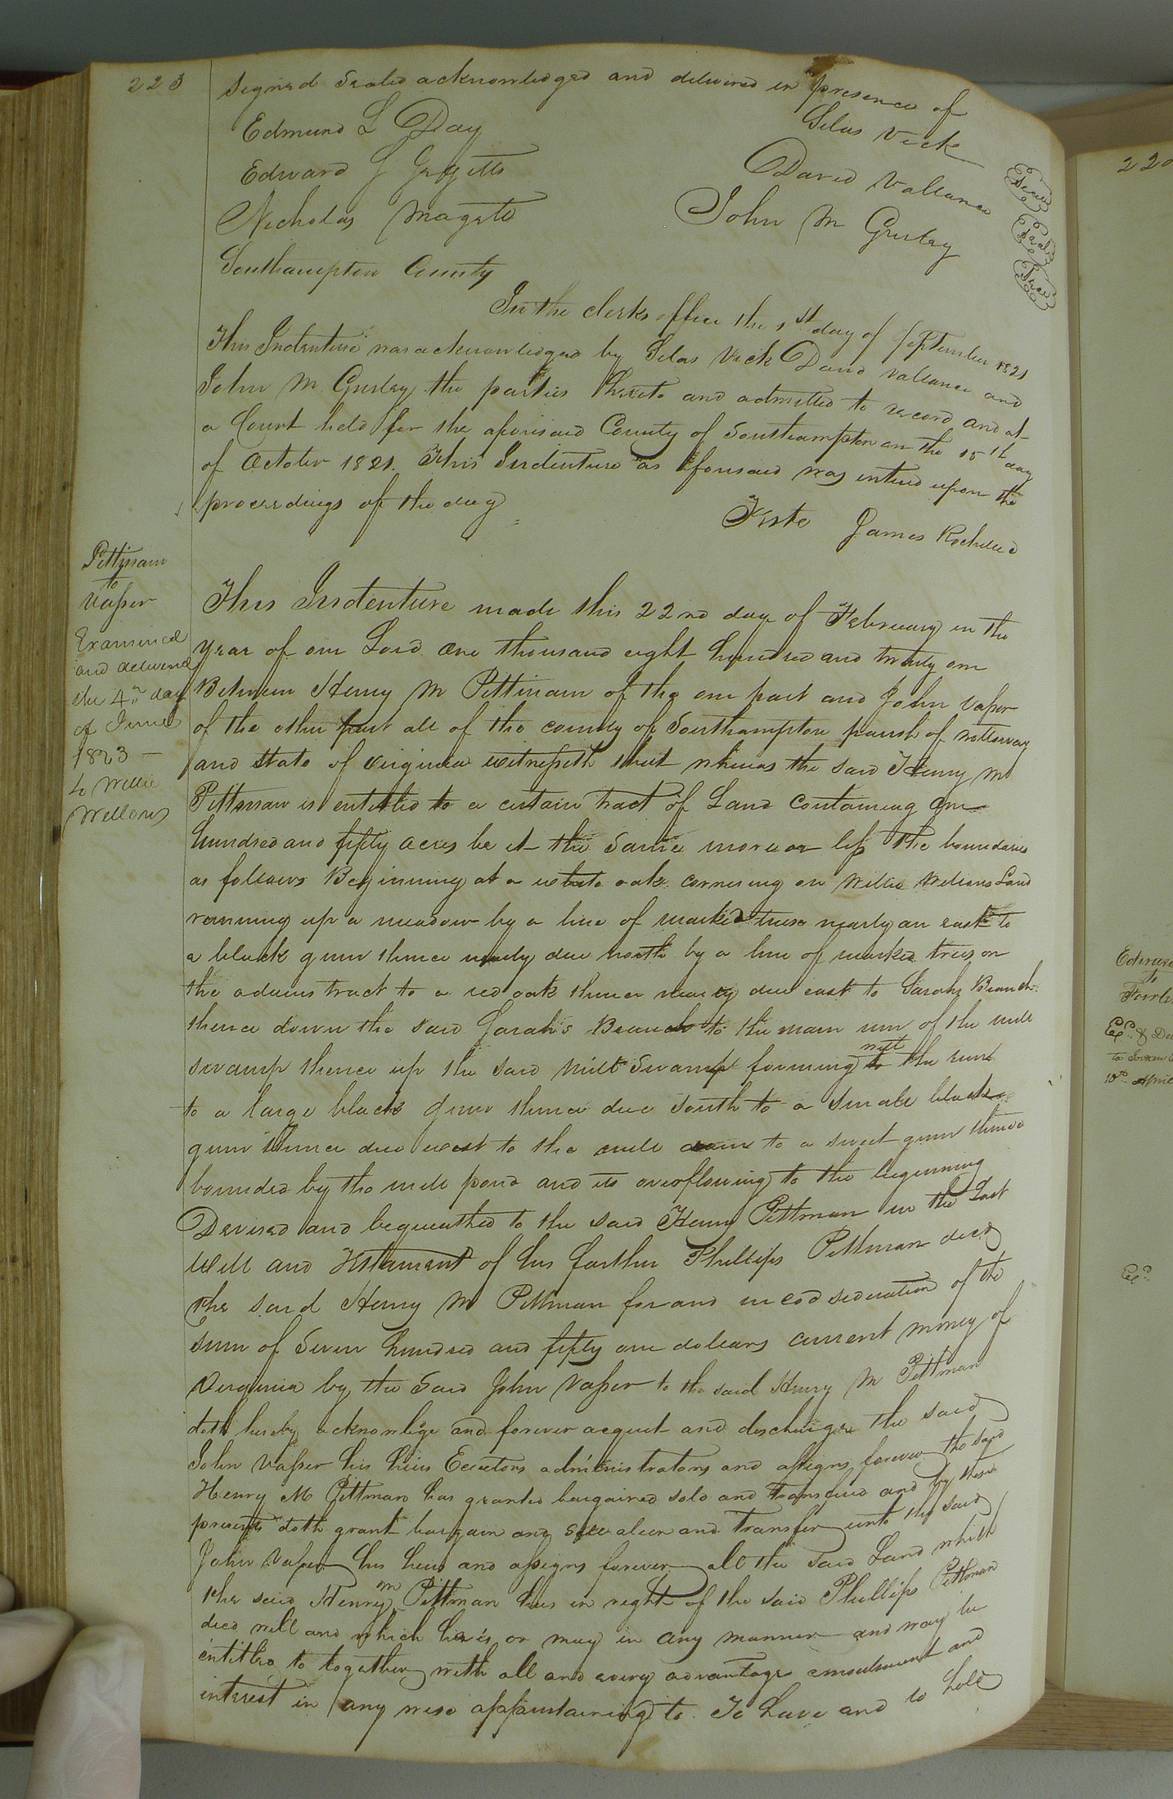 223
Signed Sealed acknowledged and delivered in presence of
Edmund L Day
Silas Vick
Seal
Edward
David Vallance
Seal
Nicholas Magett
John M Gurley
Seal
Southampton County
In the clerks office the 1st day of September 1821
This Indenture was acknowledged by Silas Vick David Vallance and
John M Gurley the parties thereto and admitted to record and at
a Court held for the aforesaid County of Southampton on the 15th day
of October 1821. This Indenture as aforesaid was entered upon the
proceedings of the day
Teste James Rochelle
Pittman
to
Vasser
Examined
and delivered
the 4th day
of June
1823 —
to Willie
Wellons
This Indenture made this 22nd day of February in the
year of our Lord one thousand eight hundred and twenty one
Between Henry M Pittman of the one part and John Vasser
of the other part all of the county of Southampton parish of nottoway
and State of Virginia witnesseth that whereas the said Henry M
Pittman is entitled to a certain tract of Land containing one
hundred and fifty acres be it the same more or less the boundaries
as follows Beginning at a white oak cornering on Willie Wellons Land
running up a meadow by a line of marked trees nearly an east to
a black gum thence nearly due north by a line of marked trees on
the tract to a red oak thence nearly due east to Sarahs Branch
thence down the said Sarah's Branch to the main run of the mill
swamp thence up the said mill Swamp forming with the run
to a large black gum thence due South to a small black
gum thence due west to the mill to a sweet gum thence
bounded by the mill pond and its overflowing to the beginning
Devised and bequeathed to the said Henry Pittman in the Last
Will and Testament of his farther Phillips Pittman decd
the said Henry M Pittman for and in consideration of the
sum of Seven hundred and fifty one dollars current money of
Virginia by the said John Vasser to the said Henry M Pittman
doth hereby acknowlige and forever acquit and discharge the said
John Vasser his heirs Executors administrators and assigns forever the said
Henry M Pittman has granted bargained sold and transferred and by these
presents doth grant bargain and sell alien and Transfer unto the said
John Vasser his heirs and assigns forever all the said Land which
the said Henry M Pittman has in right of the said Phillips Pittman
decd will and which he is or may in any manner and may be
entitled to together with all and every advantage emolument and
interest in any wise appertaining to. To have and to hold
220
to